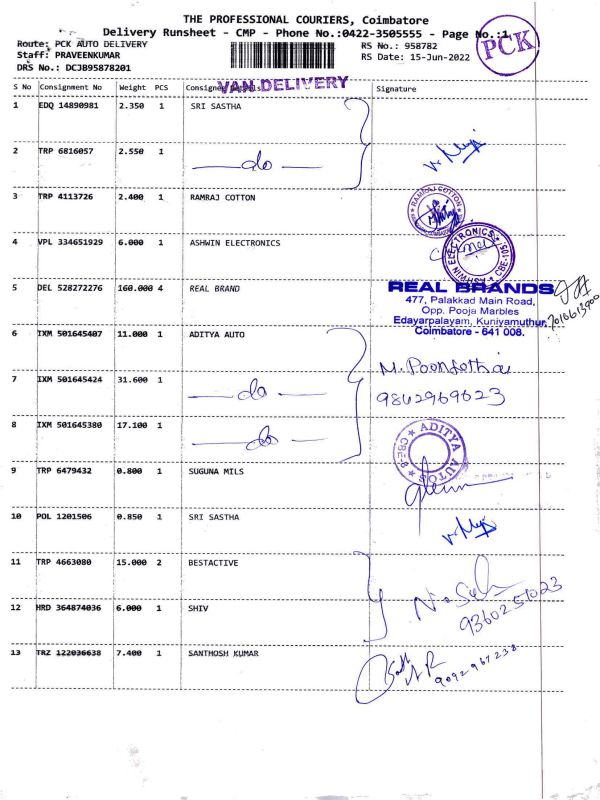 THE PROFESSIONAL COURIERS, Coimbatore
Delivery Runsheet - CMP - Phone No.:0422-3505555 - Page No.:1
Route: PCK AUTO DELIVERY
RS No.: 958782
PCK
Staff: PRAVEENKUMAR
RS Date: 15-Jun-2022
DRS No.: DCJB95878201
VAN DELIVERY
S No Consignment No Weight PCS Consignee Details Signature
1 EDQ 14890981 2.350 1 SRI SASTHA
2 TRP 6816057 2.550 1 do
3 TRP 4113726 2.400 1 RAMRAJ COTTON
RAMRAJ COTTON
4 VPL 334651929 6.000 1 ASHWIN ELECTRONICS
ELECTRONICS
5 DEL 528272276 160.000 4 REAL BRAND
REAL BRANDS
477, Palakkad Main Road,
Opp. Pooja Marbles
Edayarpalayam, Kuniyamuthur,
Coimbatore - 641 008.
6 IXM 501645407 11.000 1 ADITYA AUTO
7 IXM 501645424 31.600 1 do
9842969623
8 IXM 501645380 17.100 1 do
ADITYA AUTOS
CBE-8
9 TRP 6479432 0.800 1 SUGUNA MILS
10 POL 1201506 0.850 1 SRI SASTHA
11 TRP 4663080 15.000 2 BESTACTIVE
12 HRD 364874036 6.000 1 SHIV
9360251023
13 TRZ 122036638 7.400 1 SANTHOSH KUMAR
9092967238